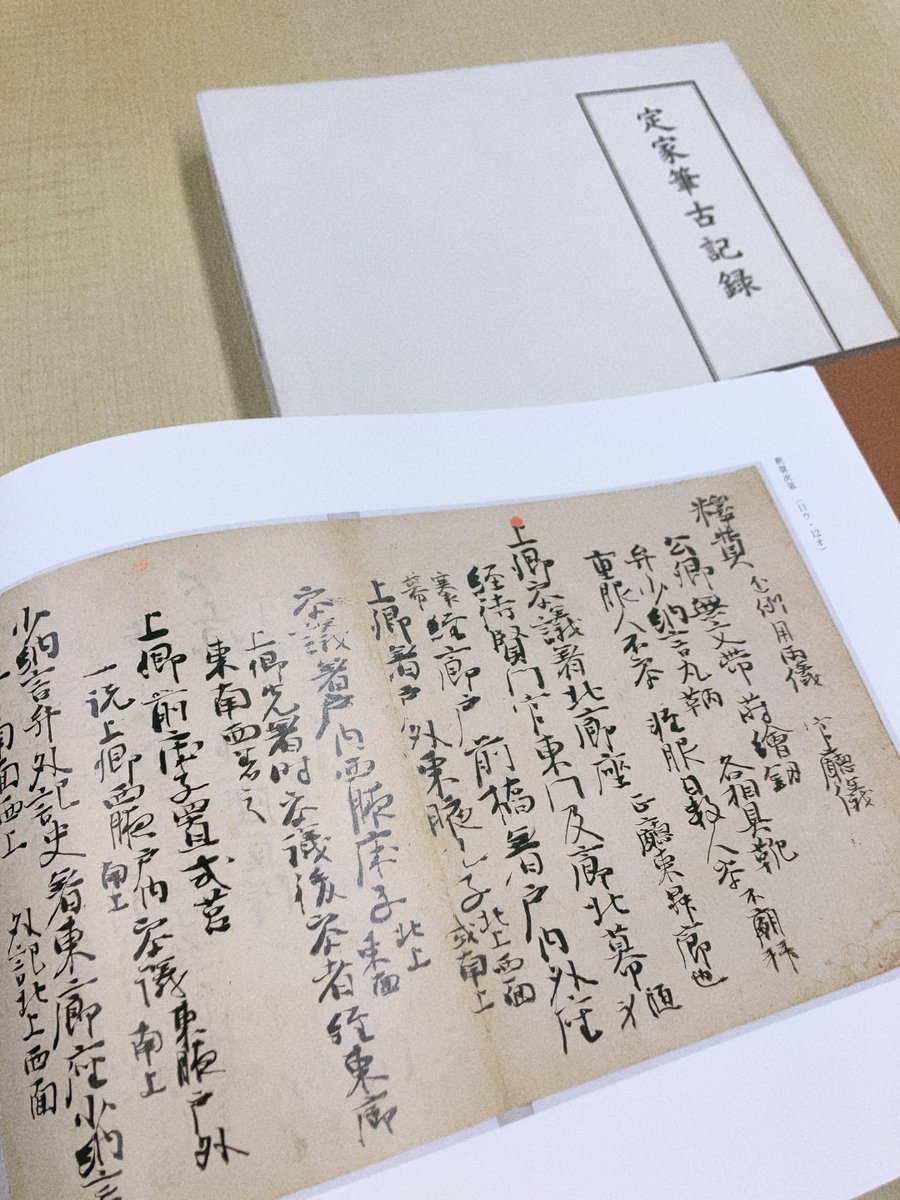 定家筆古記録
釈奠次第(11ウ・12オ)
釋奠 近例用雨儀 官廳儀
公卿無文帯 蒔繪釼 各相具靴
弁少納言丸鞆 軽服日数人参不廟拝
重服人不参
上卿参議着北廊座 正廳東昇廊也
経待賢門官東門及廊北幕
褰幕経廊戸前橋着戸内外座
上卿着戸外東腋 子 北上西面 或南上
参議着戸内西腋床子 北上東面
上卿先着時参議後参者経東廊
東南西着之
上卿前床子置式筥
一説上卿西腋戸内 南上 参議東腋戸外 南上
少納言弁外記史着東廊座少納言
南面西上 外記北上西面